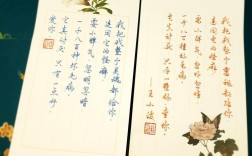 我把我整个灵魂都给你
连同它的怪癖
耍小脾气 忽明忽暗
一千八百种坏毛病
它真讨厌 只有一点好
爱你
我把我整个灵魂都给你
连同它的怪癖
耍小脾气 忽明忽暗
一千八百种坏毛病
它真讨厌 只有一点好 爱你
—王小波